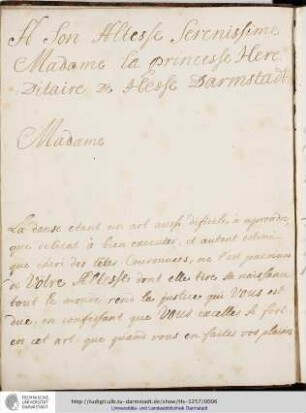 A Son Altesse Serenissime
Madame la princesse Here
Ditaire De Hesse Darmstadt
Madame
La danse etant un art aussi difficile a aprendre,
que delicat à bien executer, et autant estimé
que cheri des têtes Couronnées, ne l'est pas moins
de Vôtre Altesse dont elle tire sa naissance
tout le monde rend la justice qui Vous est
due, en confessant que Vous excellez si fort
en cet art, que quand vous en faites vos plaisirs
TECHNISCHE
UNIVERSITÄT
DARMSTADT
http://tudigit.ulb.tu-darmstadt.de/show/Hs-1257/0006
Universitäts- und Landesbibliothek Darmstadt